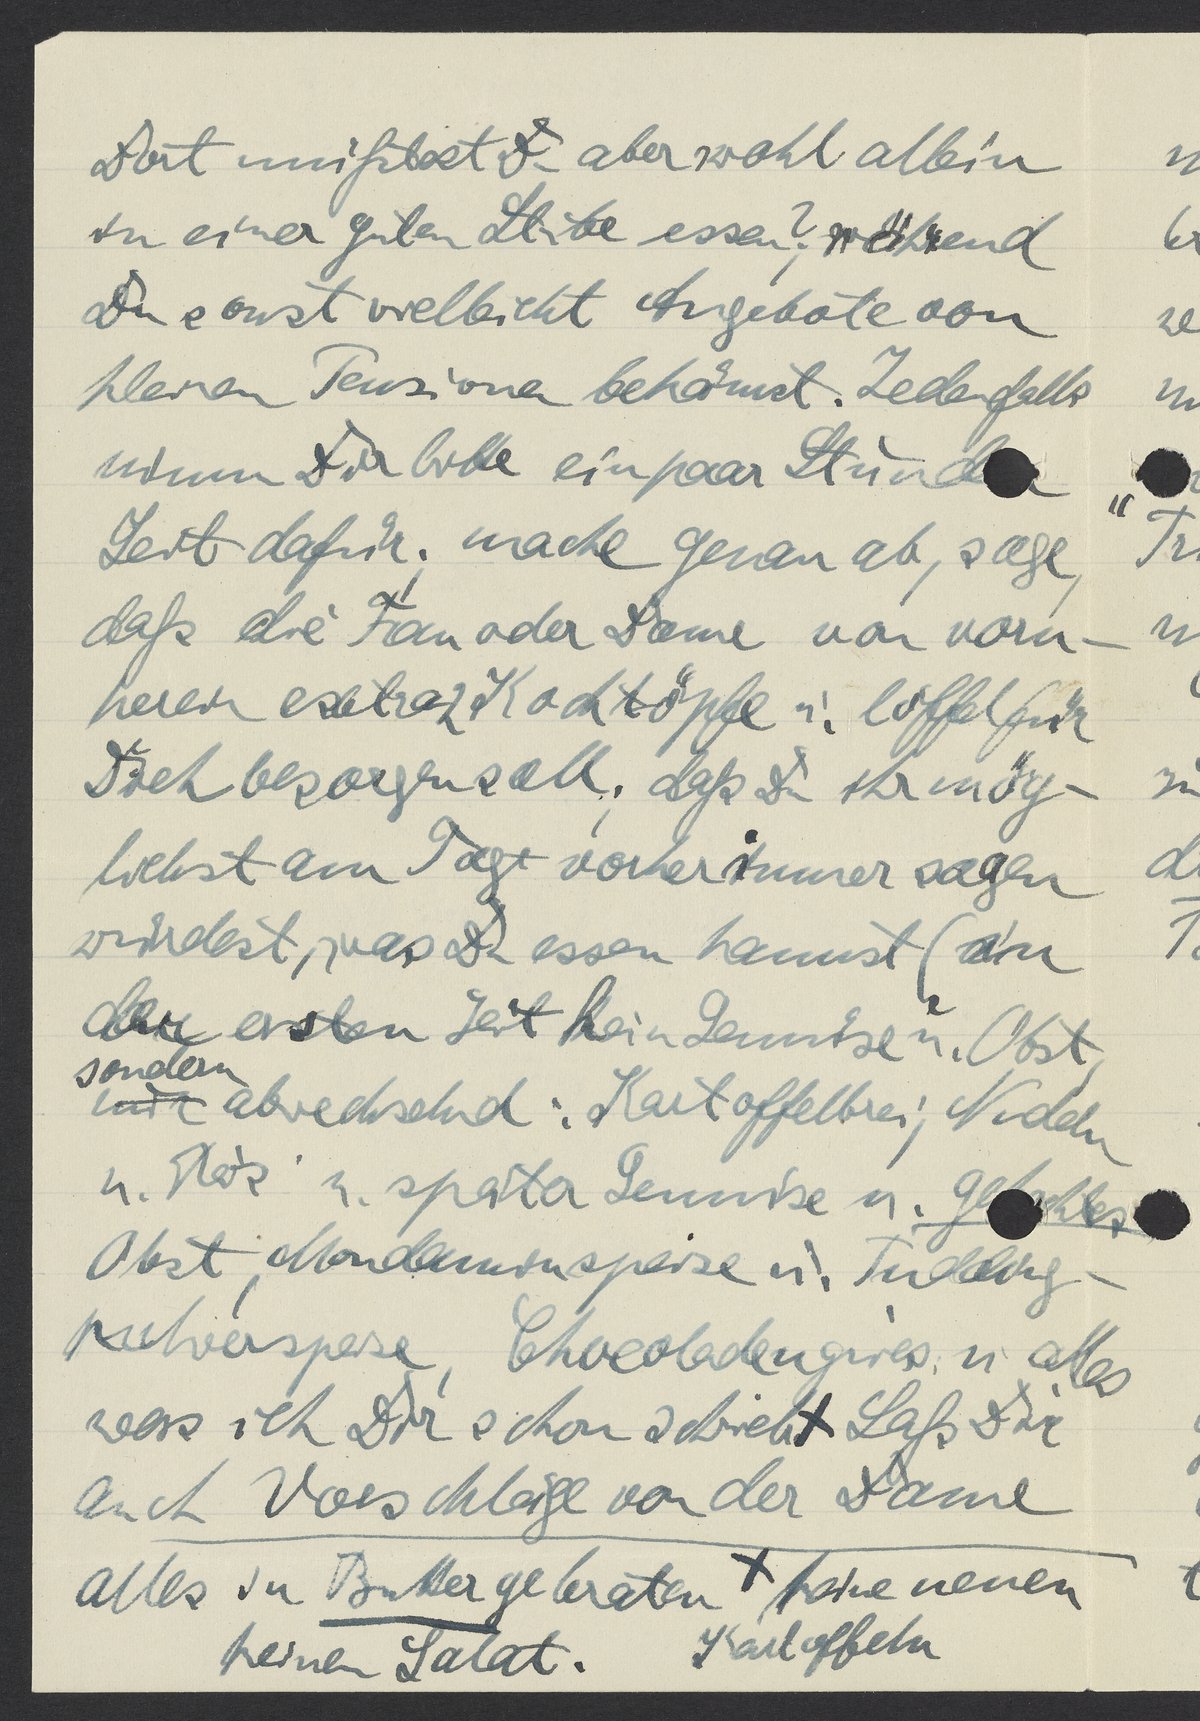 Dort müßtest Du aber wohl allein
in einer guten Stube essen?, während
Du sonst vielleicht Angebote von
kleinen Pensionen bekämst. Jedenfalls
nimm Dir bitte ein paar Stunden
Zeit dafür; mache genau ab, sage,
daß die Frau oder Dame von vorn-
herein extra 2 Kochtöpfe u. löffel für
Dich besorgen soll; daß Du ihr mög-
lichst am Tage vorher immer sagen
würdest, was Du essen kannst (in
der ersten Zeit kein Gemüse u. Obst,
sondern
abwechselnd: Kartoffelbrei, Nudeln
u. Reis u. später Gemüse u. gekochtes
Obst, Mondaminspeise u. Pudding-
pulverspeise, Chocoladengries, u. alles
was ich Dir schon schrieb + Laß Dir
auch Vorschläge von der Dame
alles in Butter gebraten + keine neuen
Kartoffeln
keinen Salat.